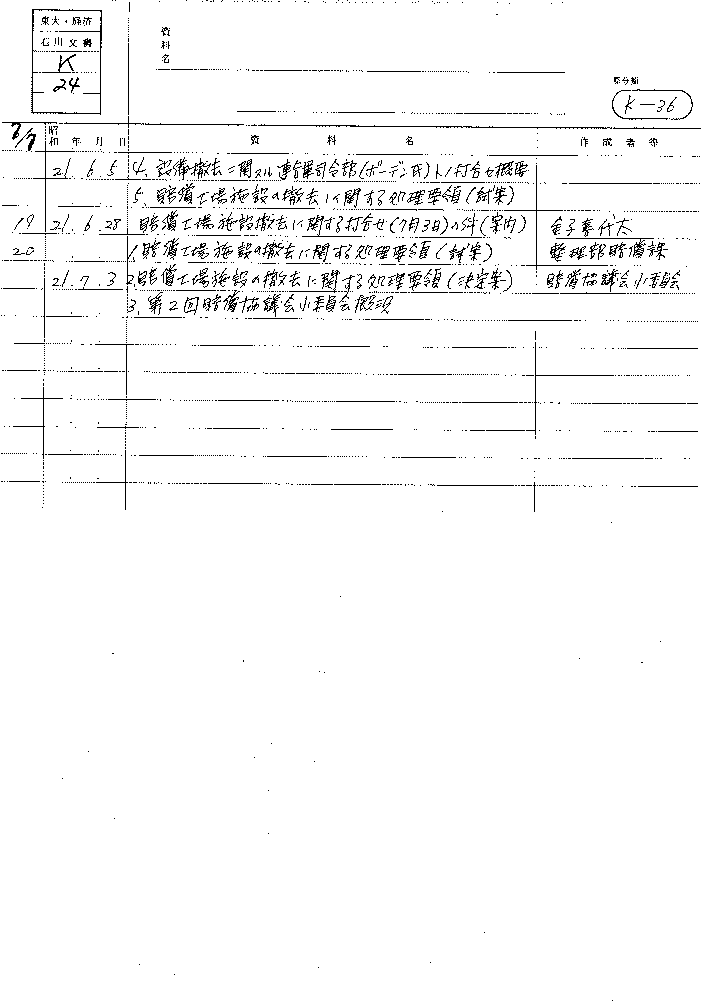 東大・経済
石川文書
K
24
資料名
原分類
K-36
7/7
昭和 年 月 日 資料名 作成者等
21. 6. 5 4. 設備撤去ニ関スル連合軍司令部(ボーデン氏)トノ打合せ概要
5. 賠償工場施設の撤去に関する処理要領(試案)
19 21. 6. 28 賠償工場施設撤去に関する打合せ(7月3日)の件(案内)
20 1. 賠償工場施設の撤去に関する処理要領(試案) 整理部賠償課
21. 7. 3 2. 賠償工場施設の撤去に関する処理要領(決定案) 賠償協議会小委員会
3. 第2回賠償協議会小委員会概況